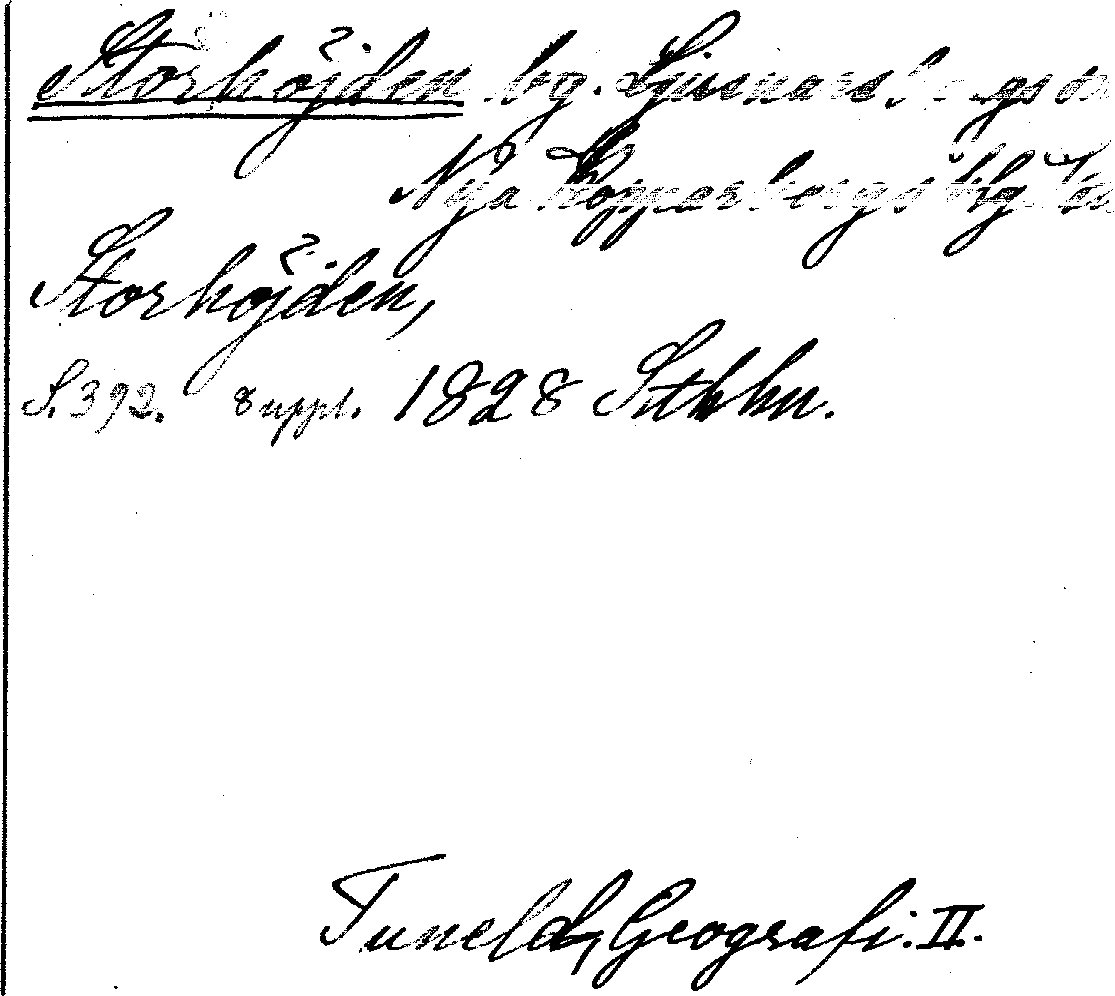 Storhöjden bg. Ljusnarsbergs sn
Nya Kopparbergs blg
Storhöjden,
S. 392. 8 uppl. 1828 Sthhm.
Tuneld, Geografi. II.